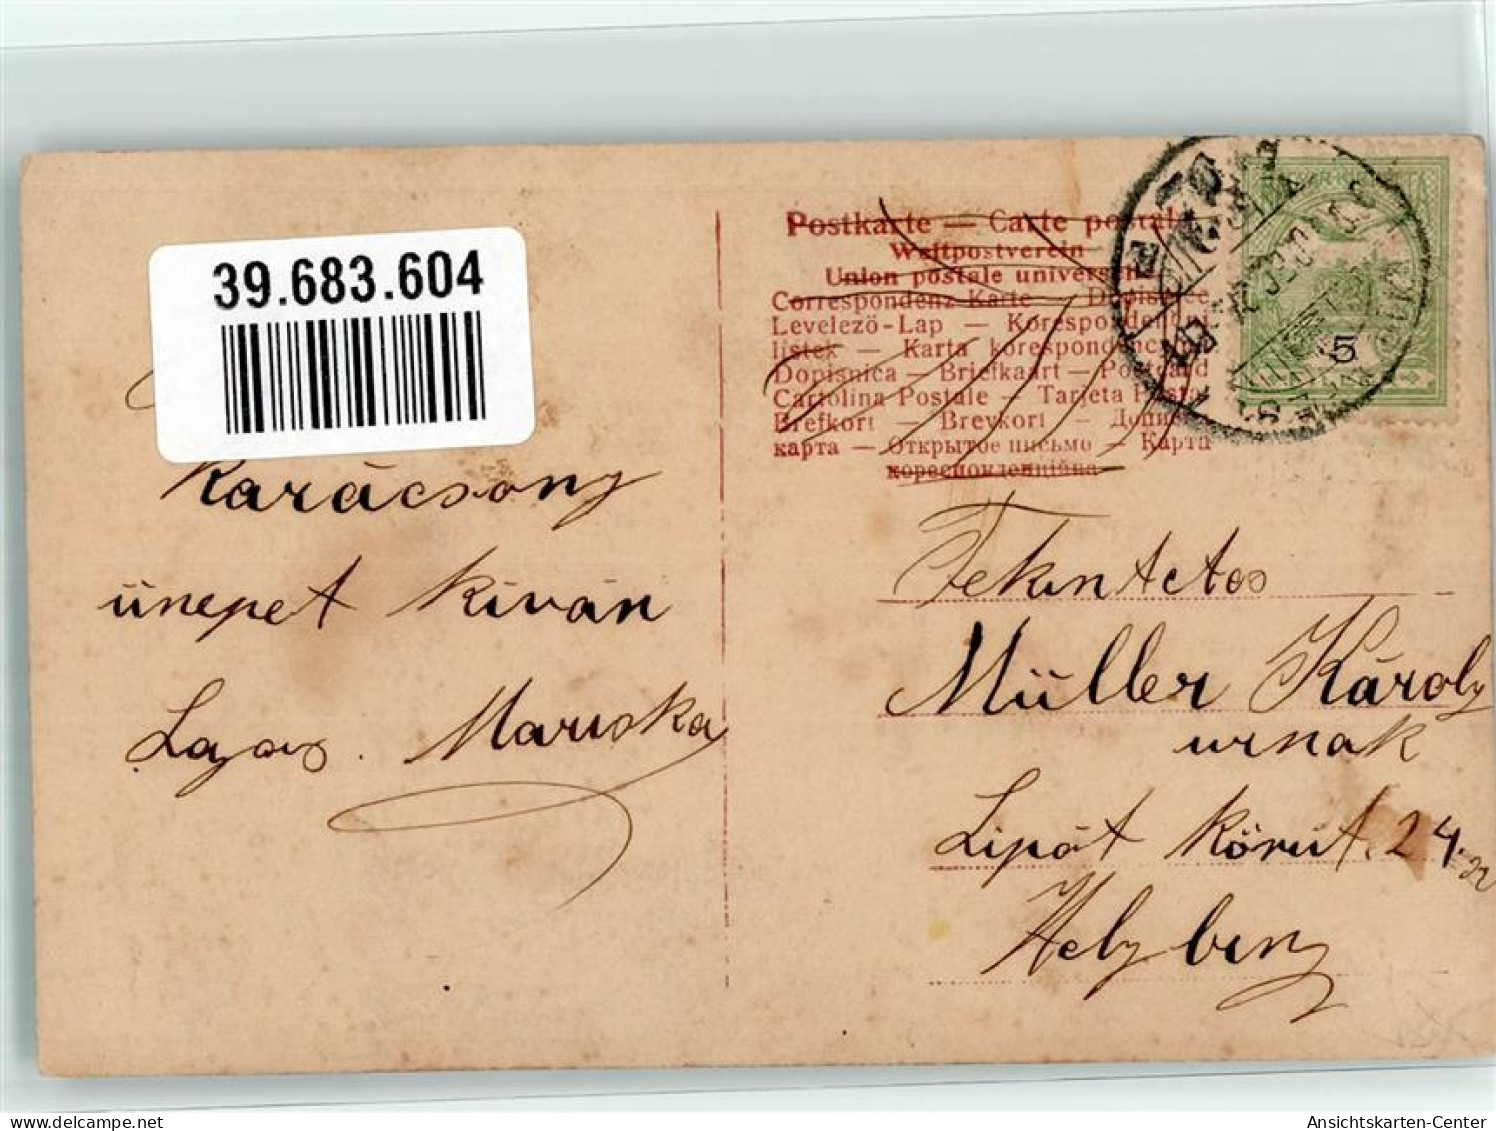 39.683.604
Karácsony
ünepet kíván
Lazas. Maruska
Postkarte — Carte postale
Weltpostverein
Union postale universelle
Correspondenz-Karte — Dopisnice
Levelező-Lap — Korespondenční
lístek — Karta korespondencyjna
Dopisnica — Briefkaart — Postcard
Cartolina Postale — Tarjeta Postal
Brefkort — Brevkort — Дописна
карта — Открытое письмо — Карта
кореспонденційна
5
Tekintetes
Müller Károly
urnak
Lipót Körút. 24.
Helyben
Ansichtskarten-Center